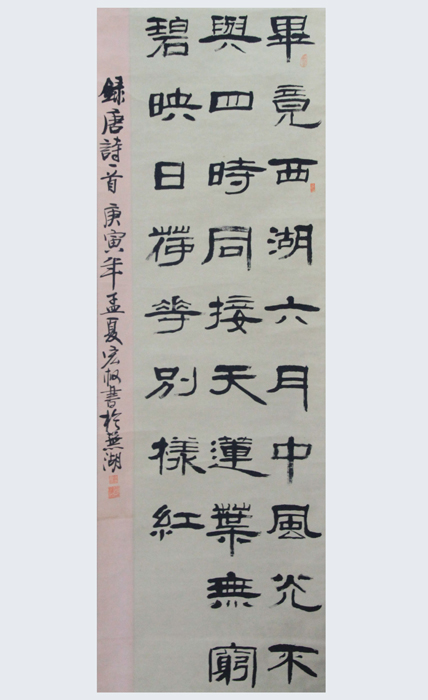 畢竟西湖六月中風光不
與四時同接天蓮葉無窮
碧映日荷花別樣紅
錄唐詩一首庚寅年孟夏宏權書於蕪湖